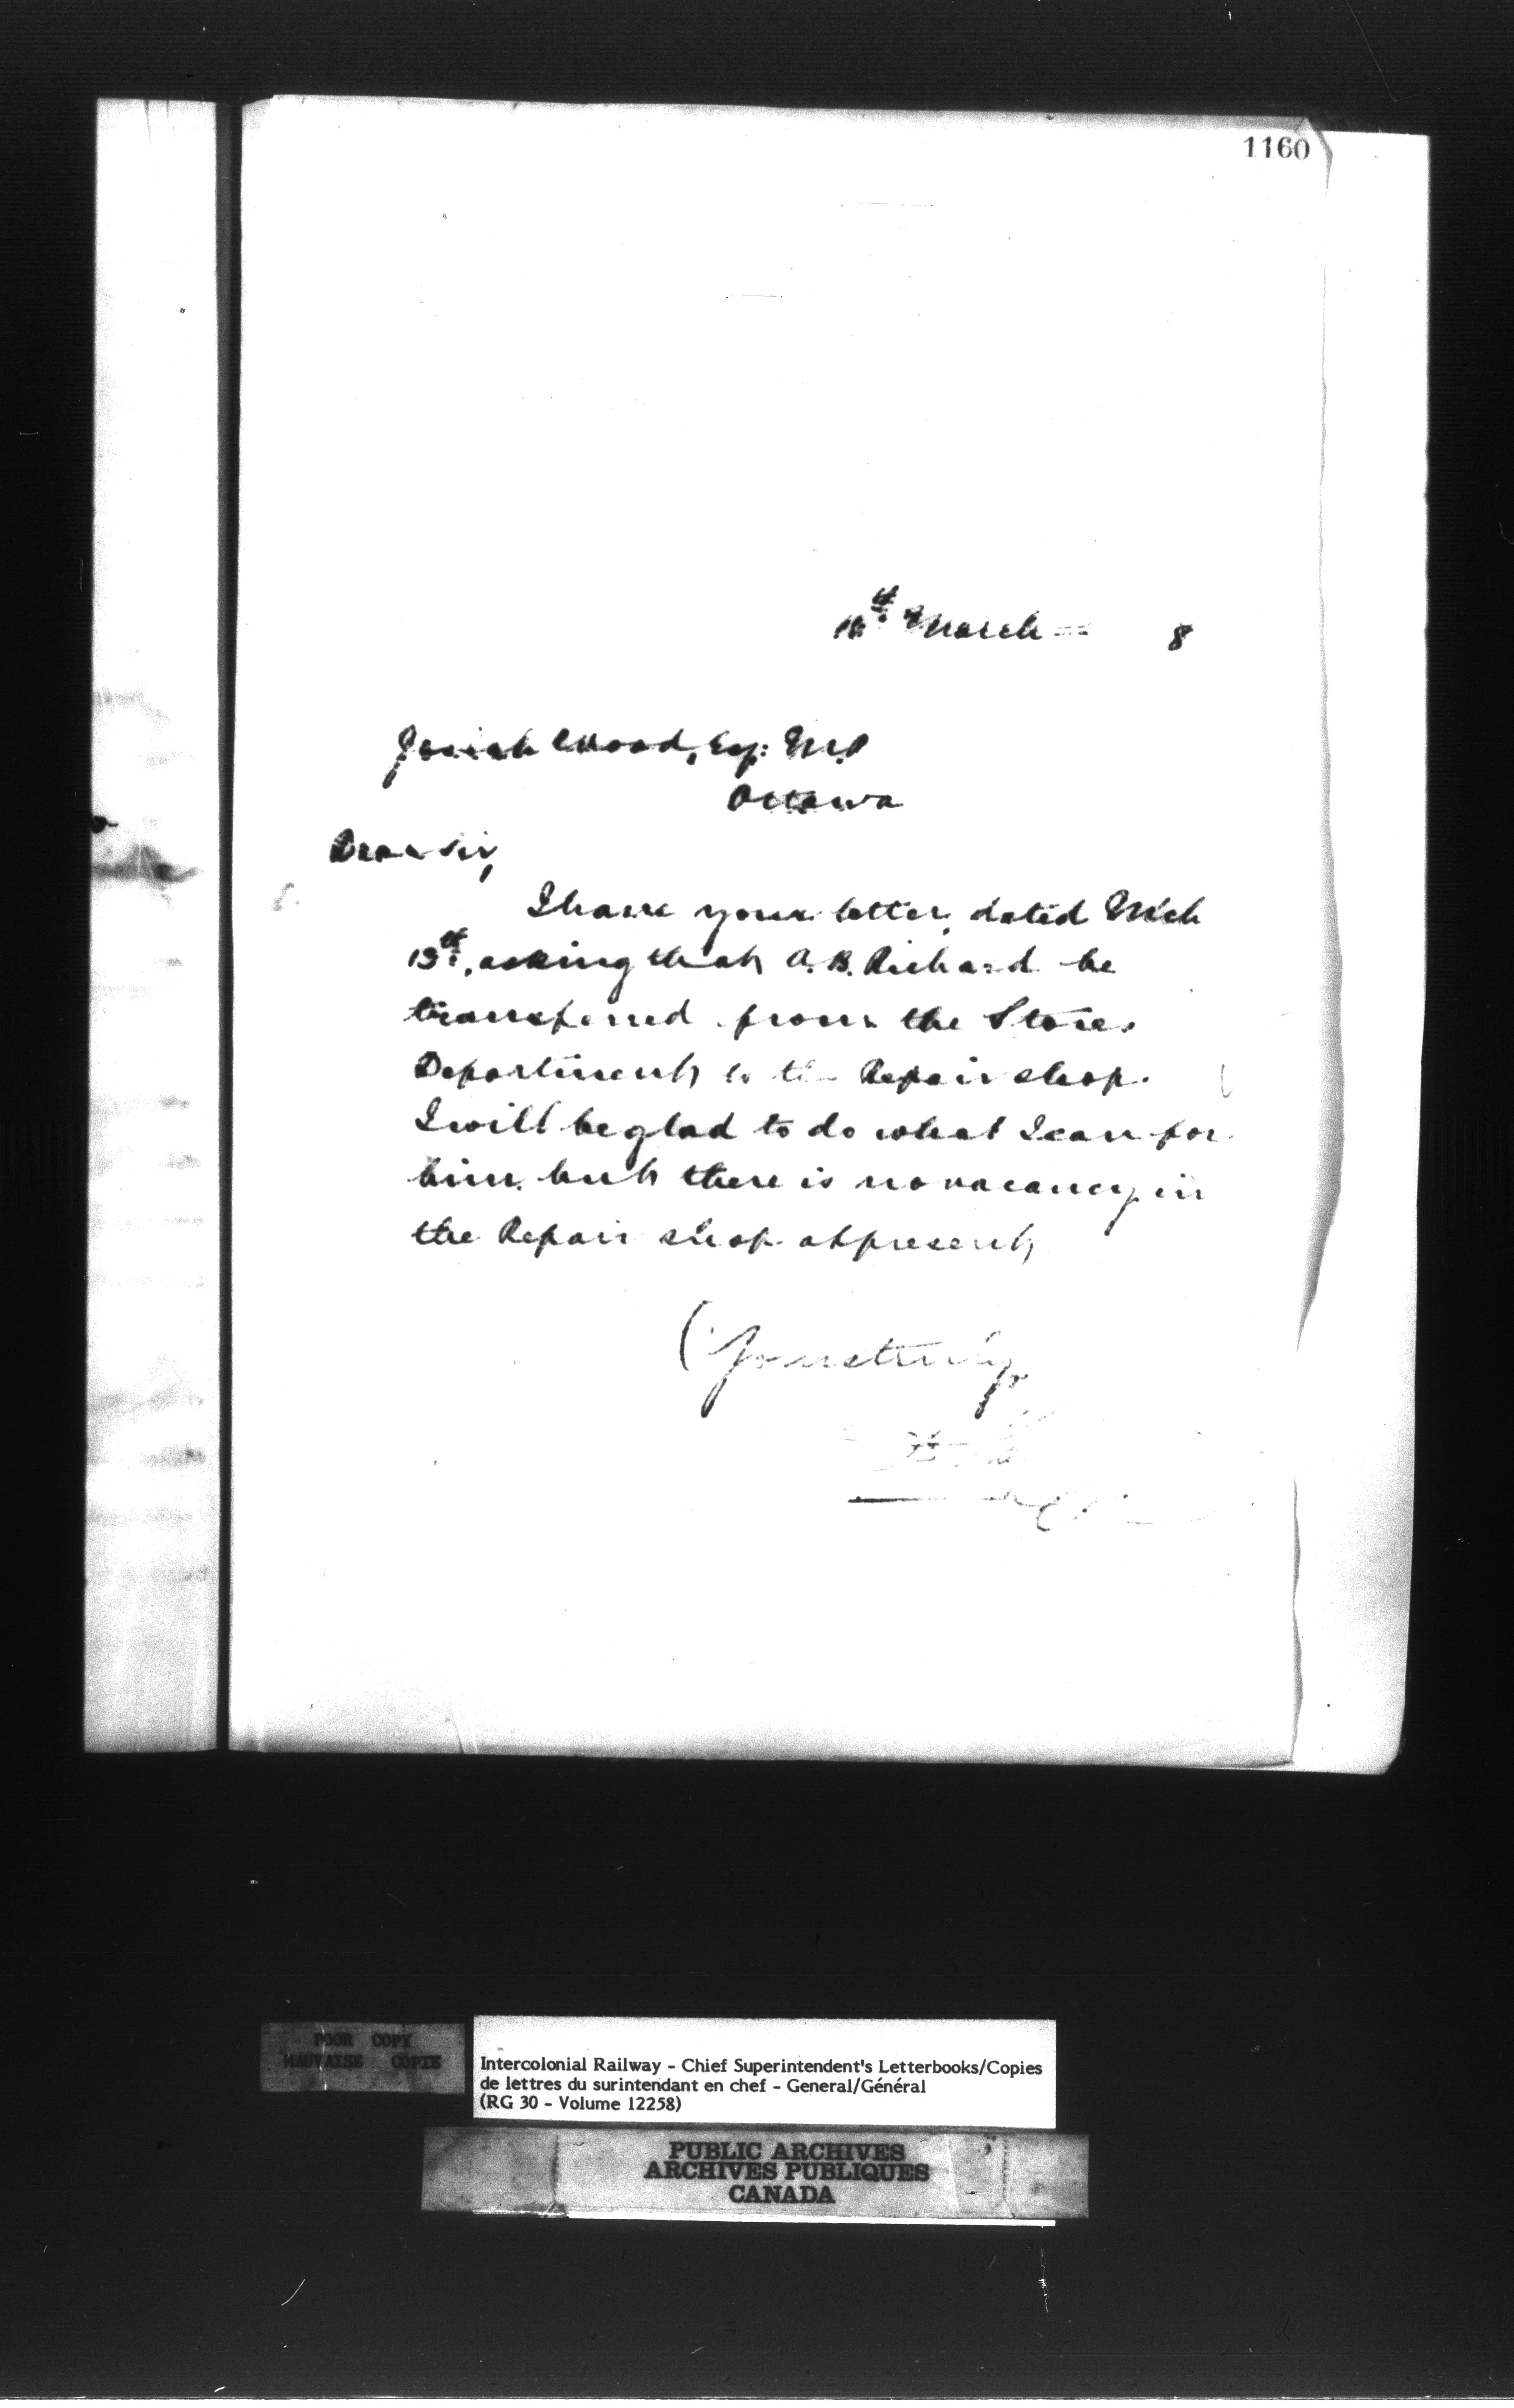 1160
16th March 8
Josiah Wood, Esq: M.P
Ottawa
Dear Sir,
I have your letter, dated Mch
13th, asking that A. B. Richard be
transferred from the Stores
Department to the Repair shop.
I will be glad to do what I can for
him but there is no vacancy in
the Repair shop at present,
Yours truly,
POOR COPY
MAUVAISE COPIE
Intercolonial Railway - Chief Superintendent's Letterbooks/Copies
de lettres du surintendant en chef - General/Général
(RG 30 - Volume 12258)
PUBLIC ARCHIVES
ARCHIVES PUBLIQUES
CANADA